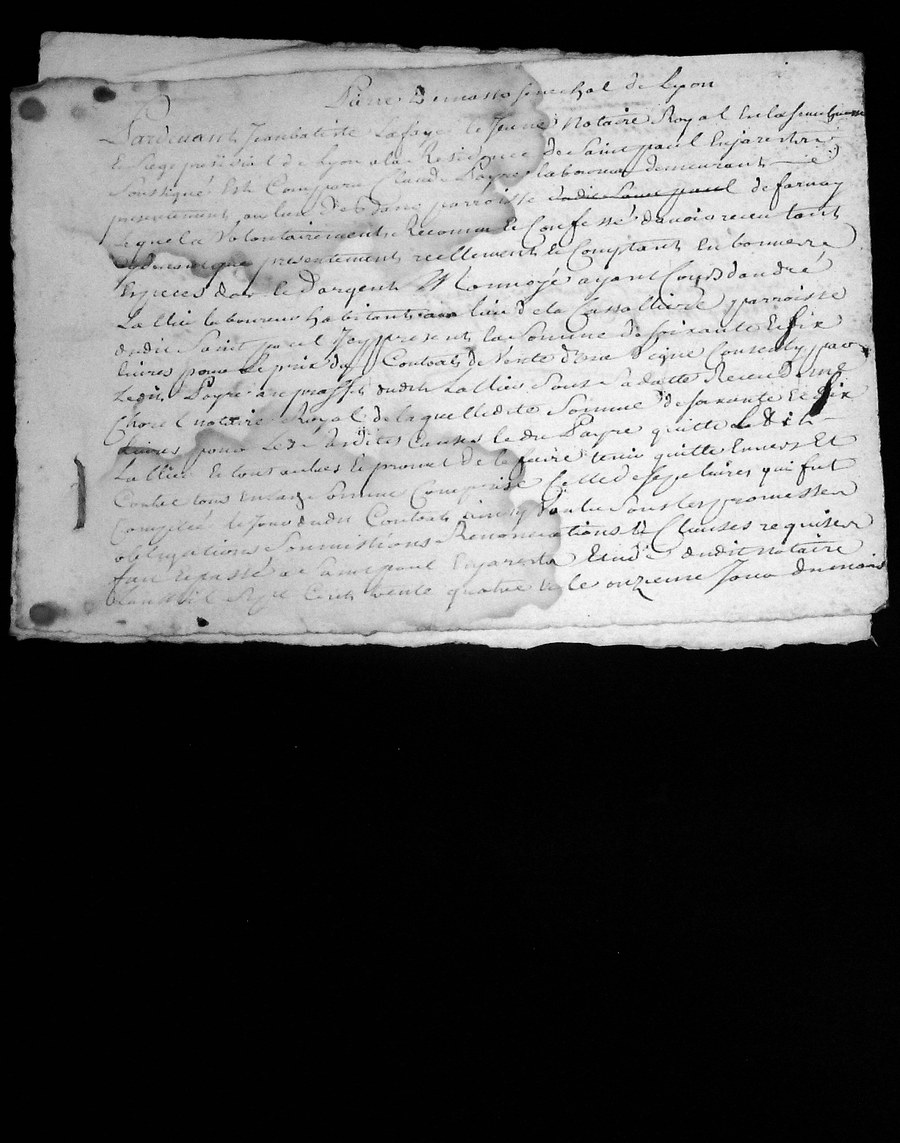 Pierre Demasso senechal de Lyon
Pardevant Jeanbatiste Lafaye le Jeune Notaire Royal En la senechaussee
Et siege presidial de Lyon a la Residence de Saint paul Enjarestre
Soussigné Est Comparu Claude Payre laboureur demeurant
presentement au lieu de parroisse dudit Saint paul de farnay
Lequel a Volontairement Reconnu Et Confessé davoir receu tant
que presentement reellement Et Comptant En bonnes
Especes dor Et dargent Monnoyé ayant Cours dandré
Lallier laboureur habitant au lieu de la parroisse
dudit Saint paul Jey present la Somme de soixante Et six
livres pour le prix du Contrat de Vente dune Vigne Consenty par
Ledit Payre au proffit dudit Lallier Sous Sa datte Receu Dme
Chorel notaire Royal de laquelle ditte Somme de soixante Et six
livres pour Les Causes le dit Payre quitte Le dit
Lallier Et tous autres Et promet de le faire tenir quitte Envers Et
Contre tous En laq. Somme Comprise Celle de sept livres qui fut
Comptée le Jour dudit Contrat ainsy Voulu Sous les promesses
obligations Soumissions Renonciations & Clauses requises
fait Et passé a Saint paul Enjarestre Etude dudit notaire
Lan Mil Sept Cent trente quatre & le onzieme Jour du mois